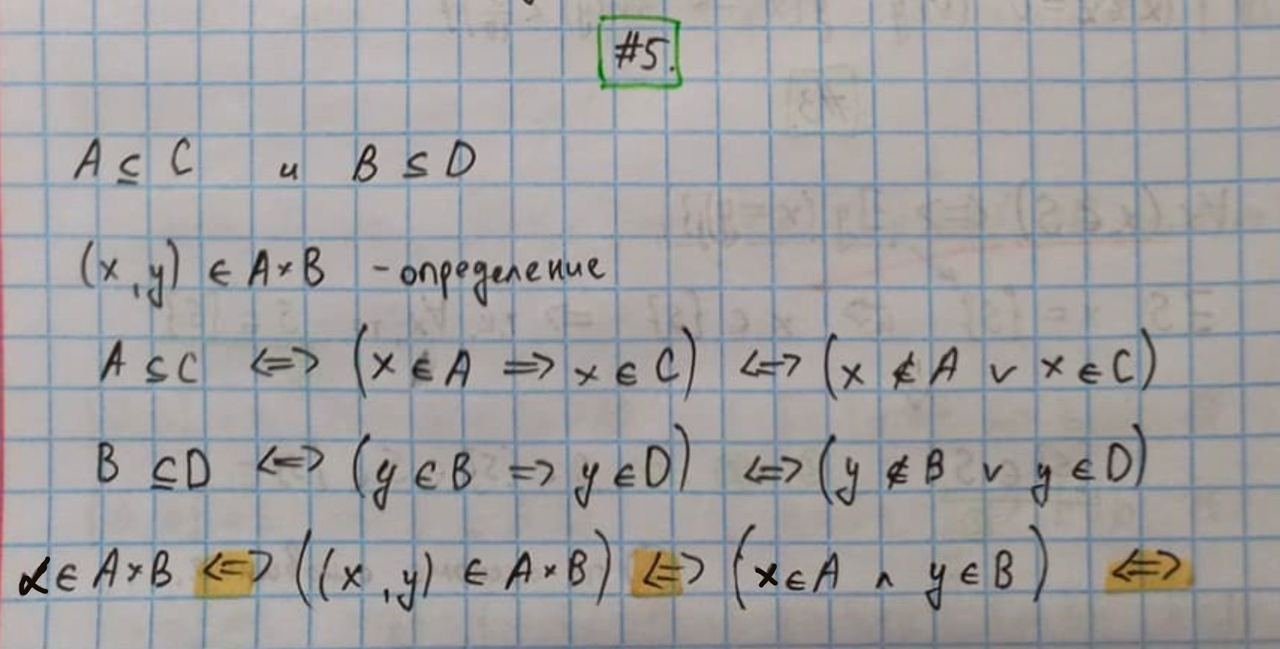 #5.
A ⊆ C и B ⊆ D
(x, y) ∈ A×B - определение
A ⊆ C <=> (x ∈ A => x ∈ C) <=> (x ∉ A ∨ x ∈ C)
B ⊆ D <=> (y ∈ B => y ∈ D) <=> (y ∉ B ∨ y ∈ D)
α ∈ A×B <=> ((x, y) ∈ A×B) <=> (x ∈ A ∧ y ∈ B) <=>